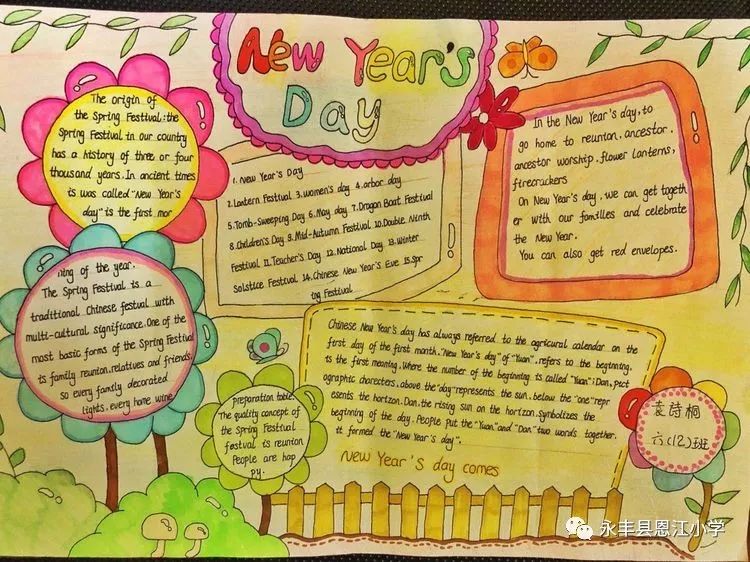 New Year's
Day
The origin of
the Spring Festival:the
Spring Festival in our country
has a history of three or four
thousand years. In ancient times
is was called "New Year's
day" is the first mor
ning of the year.
The Spring Festival is a
traditional Chinese festival with
multi-cultural significance. One of the
most basic forms of the Spring Festival
is family reunion, relatives and friends.
so every family decorated
lights, every home wine
preparation table.
The quality concept of
the Spring Festival
festival is reunion
People are hap
py.
1. New Year's Day
2. Lantern Festival 3. women's day 4. arbor day
5. Tomb-Sweeping Day 6. May day 7. Dragon Boat Festival
8. Children's Day 9. Mid-Autumn Festival 10. Double Ninth
Festival 11. Teacher's Day 12. National Day 13. Winter
Solstice Festival 14. Chinese New Year's Eve 15. Spr
ing Festival
In the New Year's day, to
go home to reunion, ancestor,
ancestor worship, flower lanterns,
firecrackers
On New Year's day, we can get togeth
er with our families and celebrate
the New Year.
You can also get red envelopes.
Chinese New Year's day has always referred to the agricural calendar on the
first day of the first month. "New Year's day" of "Yuan", refers to the beginning,
is the first meaning. Where the number of the beginning is called "Yuan"; Dan, pict
ographic charecters, above the "day" represents the sun, below the "one" repr
esents the horizon. Dan, the rising sun on the horizon, symbolizes the
beginning of the day. People put the "Yuan" and "Dan" two words together,
it formed the "New Year's day".
New Year's day comes
袁诗桐
六(12)班
永丰县恩江小学